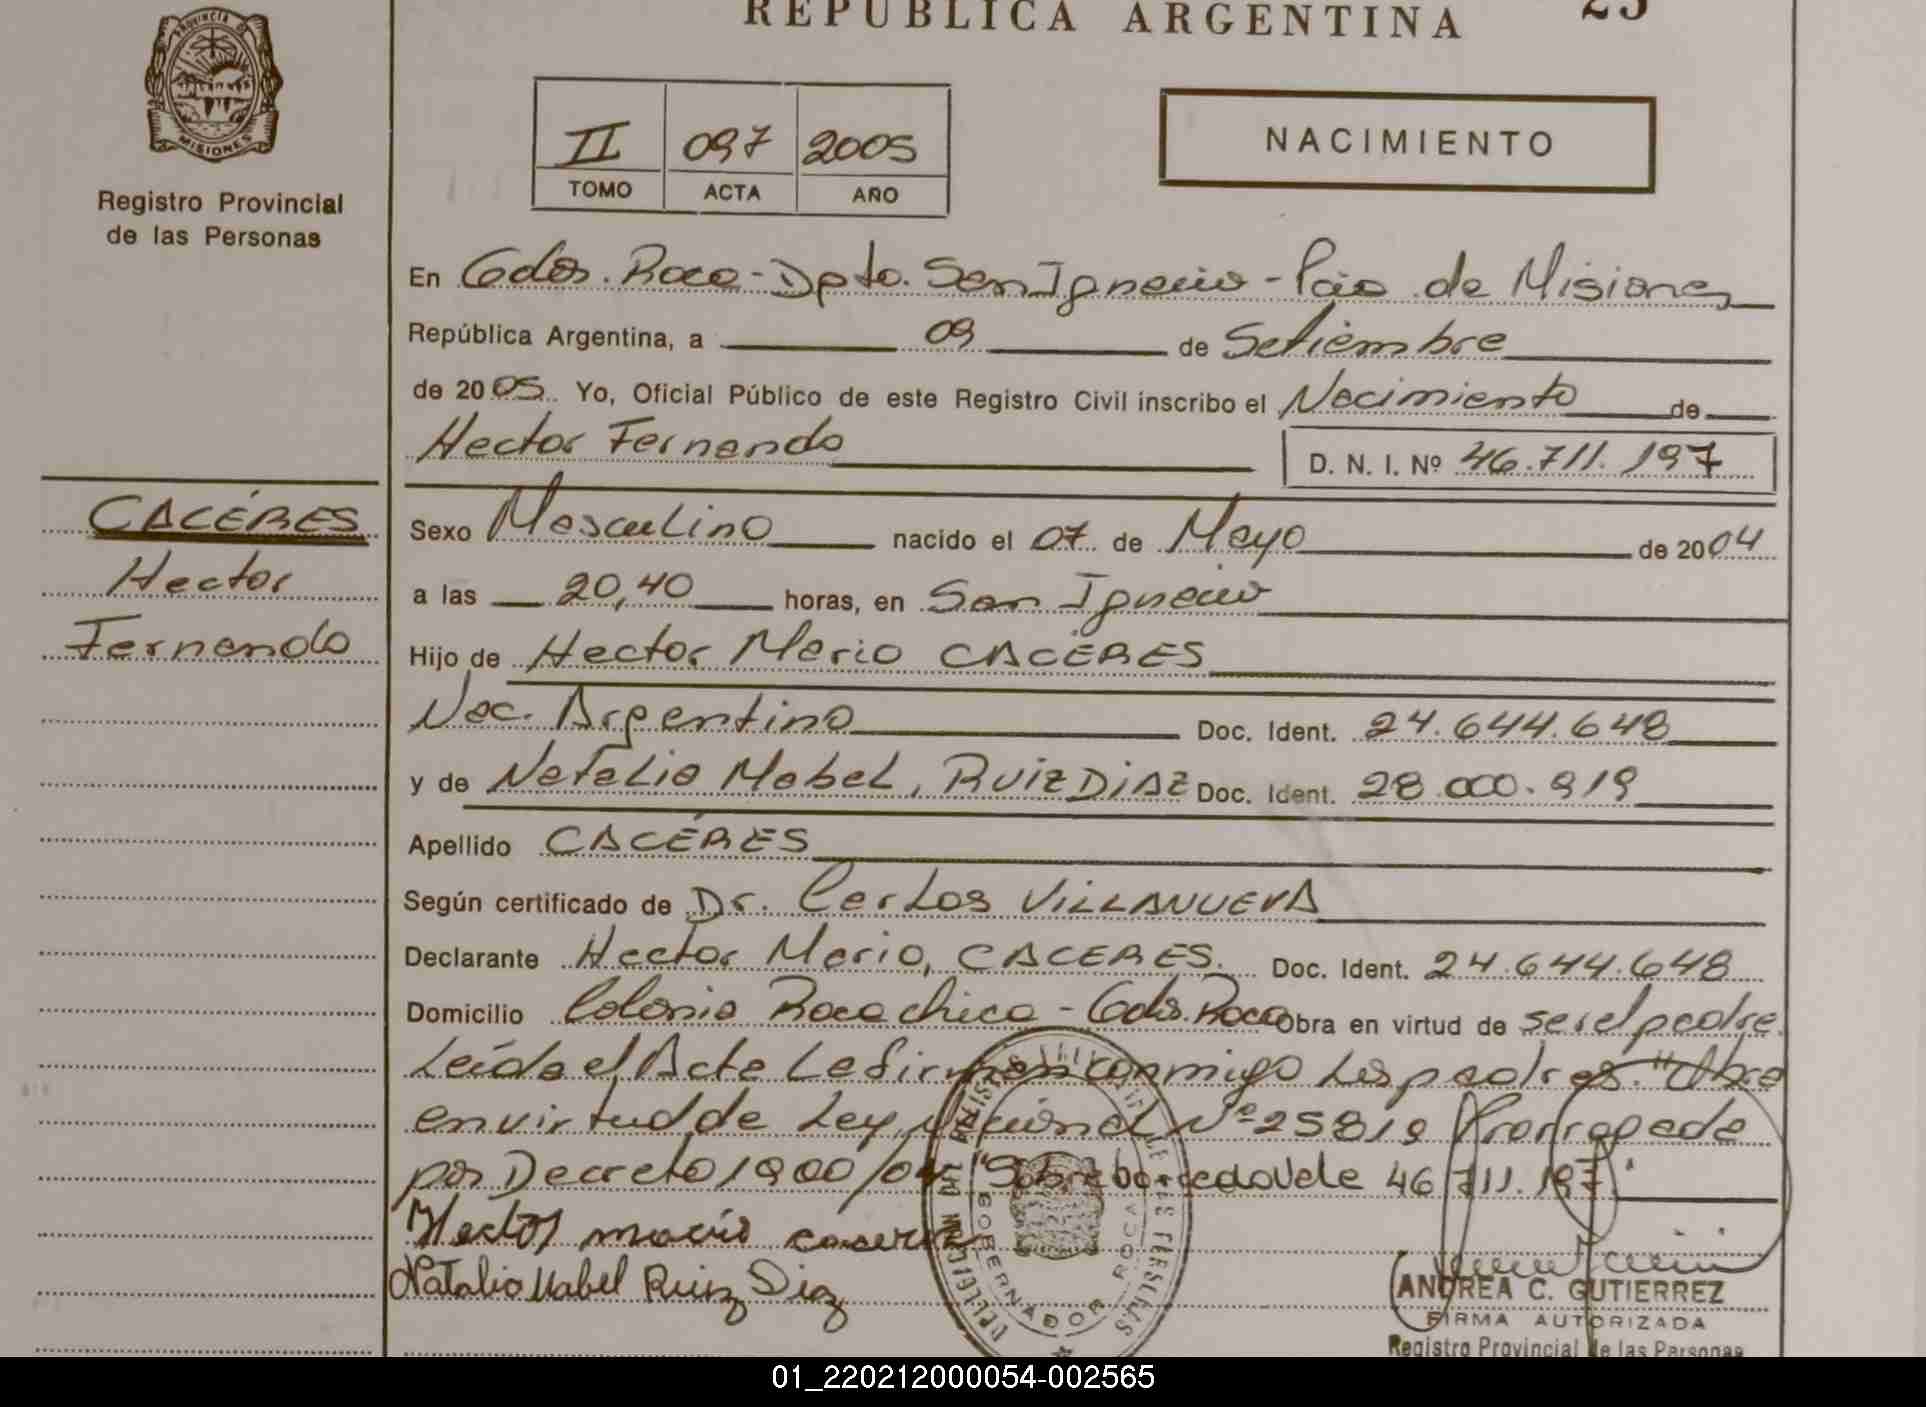 REPUBLICA ARGENTINA 25
PROVINCIA DE
MISIONES
Registro Provincial
de las Personas
II 097 2005
TOMO ACTA AÑO
NACIMIENTO
En Gdor. Roca - Dpto. San Ignacio - Pcia de Misiones
República Argentina, a 09 de Setiembre
de 2005. Yo, Oficial Público de este Registro Civil inscribo el Nacimiento de
Hector Fernando
D. N. I. Nº 46.711.197
CACÉRES
Hector
Fernando
Sexo Masculino nacido el 07 de Mayo de 2004
a las 20,40 horas, en San Ignacio
Hijo de Hector Mario CACÉRES
Nac. Argentino Doc. Ident. 24.644.648
y de Natalia Mabel, RUIZ DIAZ Doc. Ident. 28.000.919
Apellido CACÉRES
Según certificado de Dr. Carlos VILLANUEVA
Declarante Hector Mario, CACERES. Doc. Ident. 24.644.648
Domicilio Colonia Roca chica - Gdor. Roca Obra en virtud de ser el padre.
Leída el Acta La firman conmigo los padres. "Obra
en virtud de Ley Nacional Nº 25819 Prorrogada
por Decreto 1900/04" Sobreborrado Vale 46 711.197.
Hector mario caceres
Natalia Mabel Ruiz Diaz
GOBERNADOR ROCA
ANDREA C. GUTIERREZ
FIRMA AUTORIZADA
Registro Provincial de las Personas
01_220212000054-002565